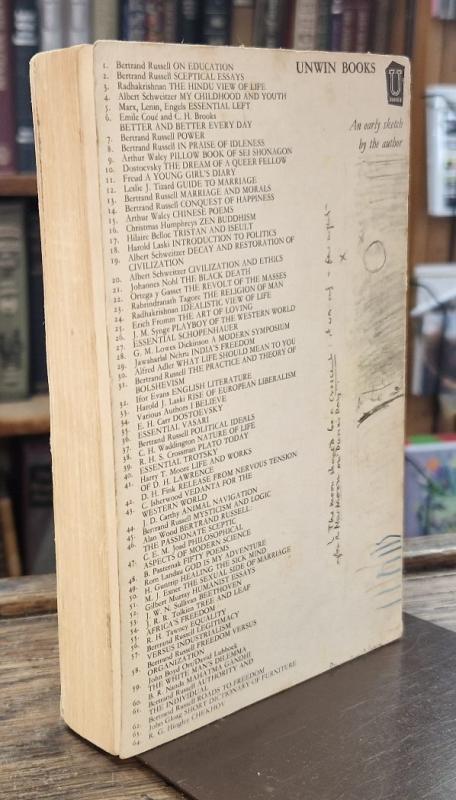 UNWIN BOOKS
U
An early sketch
by the author
1. Bertrand Russell ON EDUCATION
2. Bertrand Russell SCEPTICAL ESSAYS
3. Radhakrishnan THE HINDU VIEW OF LIFE
4. Albert Schweitzer MY CHILDHOOD AND YOUTH
5. Marx, Lenin, Engels ESSENTIAL LEFT
6. Emile Coué and C. H. Brooks
BETTER AND BETTER EVERY DAY
7. Bertrand Russell POWER
8. Bertrand Russell IN PRAISE OF IDLENESS
9. Arthur Waley PILLOW BOOK OF SEI SHONAGON
10. Dostoevsky THE DREAM OF A QUEER FELLOW
11. Freud A YOUNG GIRL'S DIARY
12. Leslie J. Tizard GUIDE TO MARRIAGE
13. Bertrand Russell MARRIAGE AND MORALS
14. Bertrand Russell CONQUEST OF HAPPINESS
15. Arthur Waley CHINESE POEMS
16. Christmas Humphreys ZEN BUDDHISM
17. Hilaire Belloc TRISTAN AND ISEULT
18. Harold Laski INTRODUCTION TO POLITICS
19. Albert Schweitzer DECAY AND RESTORATION OF
CIVILIZATION
20. Albert Schweitzer CIVILIZATION AND ETHICS
21. Johannes Nohl THE BLACK DEATH
22. Ortega y Gasset THE REVOLT OF THE MASSES
23. Rabindranath Tagore THE RELIGION OF MAN
24. Radhakrishnan IDEALISTIC VIEW OF LIFE
25. Erich Fromm THE ART OF LOVING
26. J. M. Synge PLAYBOY OF THE WESTERN WORLD
27. ESSENTIAL SCHOPENHAUER
28. G. M. Lowes Dickinson A MODERN SYMPOSIUM
29. Jawaharlal Nehru INDIA'S FREEDOM
30. Alfred Adler WHAT LIFE SHOULD MEAN TO YOU
31. Bertrand Russell THE PRACTICE AND THEORY OF
BOLSHEVISM
32. Ifor Evans ENGLISH LITERATURE
33. Harold J. Laski RISE OF EUROPEAN LIBERALISM
34. Various Authors I BELIEVE
35. E. H. Carr DOSTOEVSKY
36. ESSENTIAL VASARI
37. Bertrand Russell POLITICAL IDEALS
38. C. H. Waddington NATURE OF LIFE
39. R. H. S. Crossman PLATO TODAY
40. ESSENTIAL TROTSKY
41. Harry T. Moore LIFE AND WORKS
OF D. H. LAWRENCE
42. D. H. Fink RELEASE FROM NERVOUS TENSION
43. C. Isherwood VEDANTA FOR THE
WESTERN WORLD
44. J. D. Carthy ANIMAL NAVIGATION
45. Bertrand Russell MYSTICISM AND LOGIC
46. Alan Wood BERTRAND RUSSELL:
THE PASSIONATE SCEPTIC
47. C. E. M. Joad PHILOSOPHICAL
ASPECTS OF MODERN SCIENCE
48. B. Pasternak FIFTY POEMS
49. Rom Landau GOD IS MY ADVENTURE
50. H. Guntrip HEALING THE SICK MIND
51. M. J. Exner THE SEXUAL SIDE OF MARRIAGE
52. Gilbert Murray HUMANIST ESSAYS
53. J. W. N. Sullivan BEETHOVEN
54. J. R. R. Tolkien TREE AND LEAF
55. AFRICA'S FREEDOM
56. R. H. Tawney EQUALITY
57. Bertrand Russell LEGITIMACY
VERSUS INDUSTRIALISM
58. Bertrand Russell FREEDOM VERSUS
ORGANIZATION
59. John Boyd Orr/David Lubbock
THE WHITE MAN'S DILEMMA
60. B. R. Nanda MAHATMA GANDHI
61. Bertrand Russell AUTHORITY AND
THE INDIVIDUAL
62. Bertrand Russell ROADS TO FREEDOM
63. John Gloag SHORT DICTIONARY OF FURNITURE
64. R. G. Hingley CHEKHOV
The moon should be a crescent